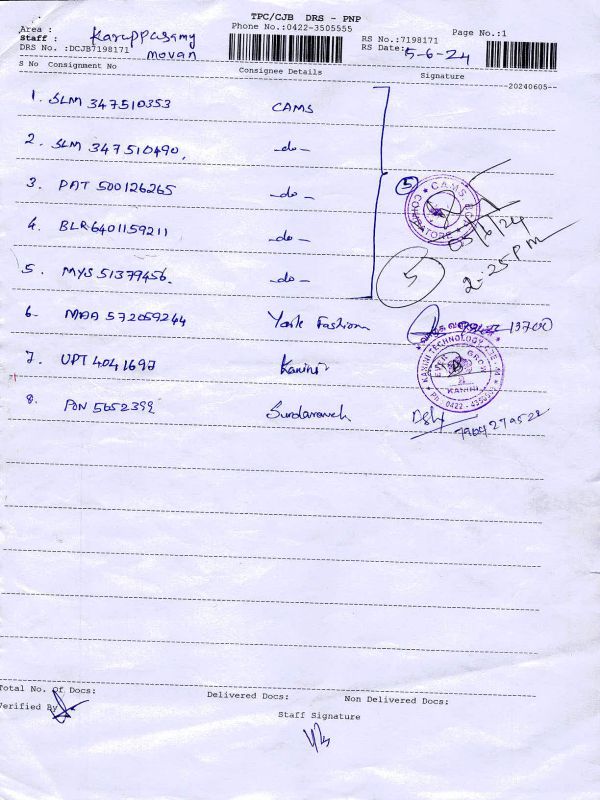 TPC/CJB DRS - PNP
Area :
Phone No.:0422-3505555
Page No.:1
Staff : Karuppasamy
RS No.:7198171
DRS No. :DCJB7198171
RS Date: 5-6-24
S No Consignment No Consignee Details Signature
--20240605--
1. SLM 347510353 CAMS
2. SLM 347510490 -do-
3. PAT 500126265 -do-
4. BLR 6401159211 -do-
5. MYS 51379456 -do-
5
CAMS
COIMBATORE
05/6/24
2:25 PM
5
6. MAA 572059244 York Fashion
7. UPT 4041697 Kanini
KANINI TECHNOLOGY
KANINI
8. PON 5652399
Total No. of Docs:
Delivered Docs:
Non Delivered Docs:
Verified By
Staff Signature